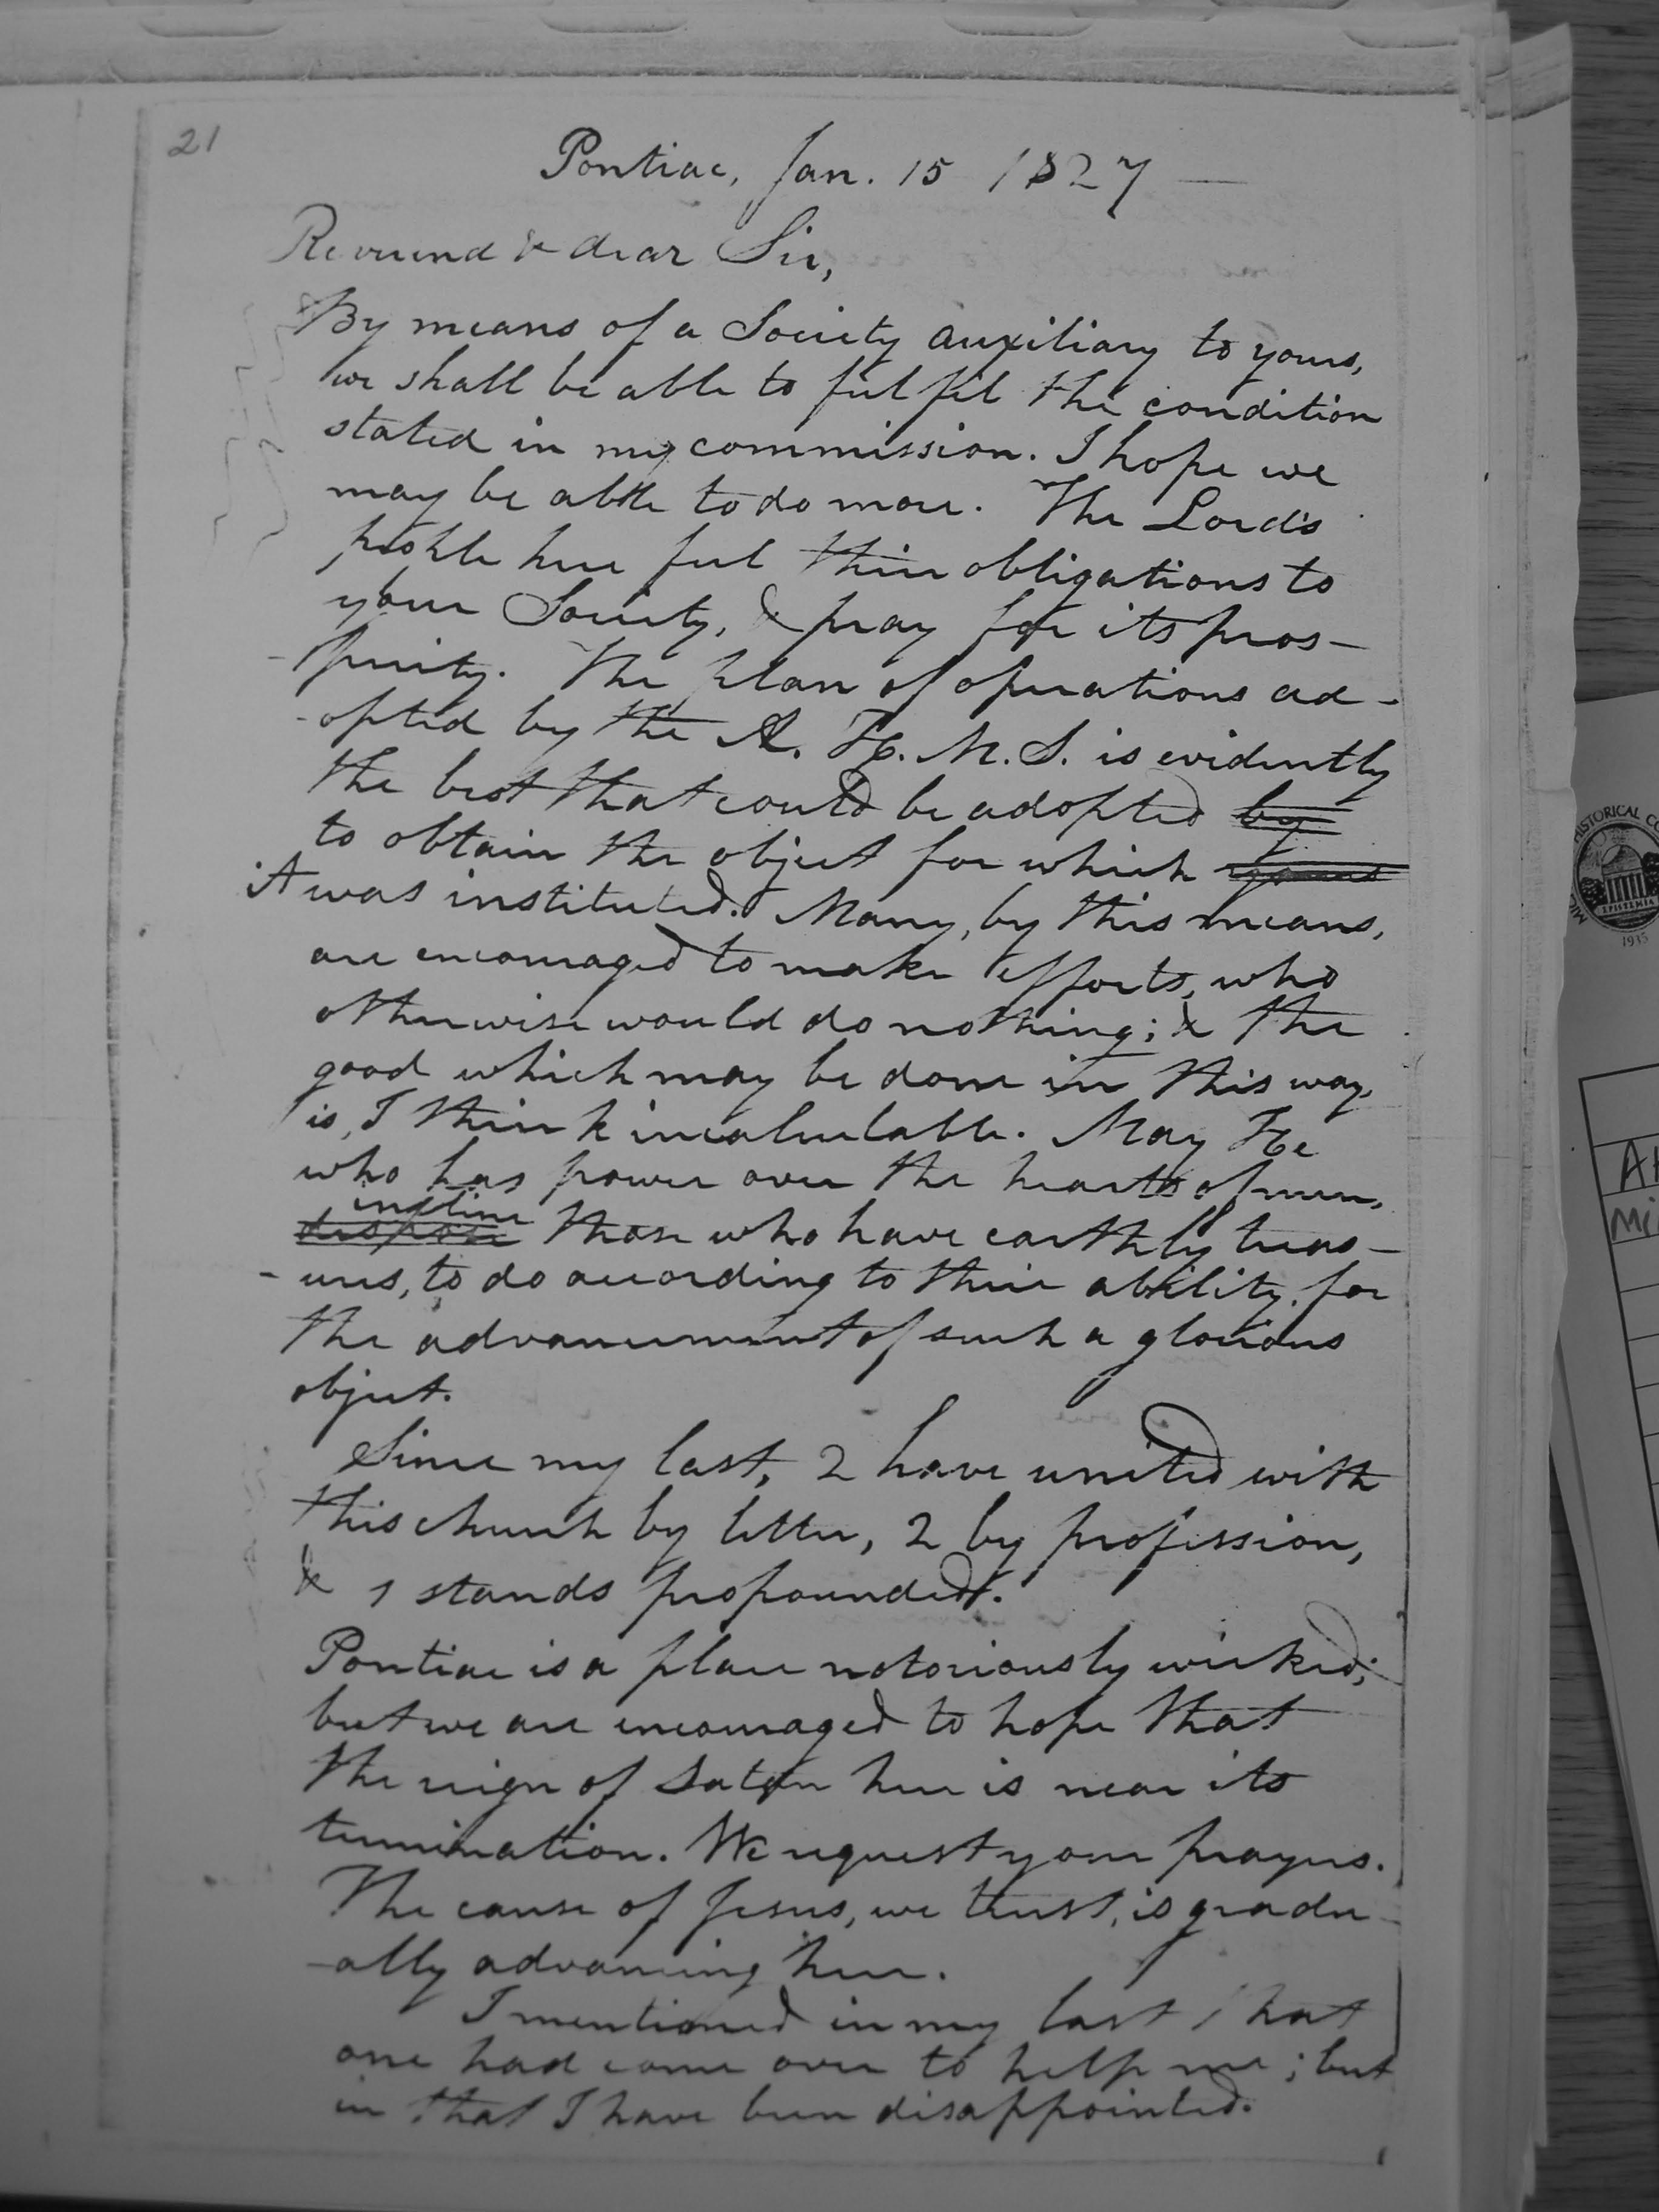 21
Pontiac, Jan. 15 1827
Reverend & dear Sir,
By means of a Society auxiliary to yours,
we shall be able to fulfil the condition
stated in my commission. I hope we
may be able to do more. The Lord's
people here feel their obligations to
your Society, & pray for its pros-
-perity. The plan of operations ad-
-opted by the A. H. M. S. is evidently
the best that could be adopted by
to obtain the object for which
it was instituted. Many, by this means,
are encouraged to make efforts, who
otherwise would do nothing; & the
good which may be done in this way,
is, I think incalculable. May He
who has power over the hearts of men,
incline
dispose those who have earthly treas-
-ures, to do according to their ability, for
the advancement of such a glorious
object.
Since my last, 2 have united with
this church by letter, 2 by profession,
& 1 stands propounded.
Pontiac is a place notoriously wicked;
but we are encouraged to hope that
the reign of Satan here is near its
termination. We request your prayers.
The cause of Jesus, we trust, is gradu-
-ally advancing here.
I mentioned in my last that
one had come over to help me; but
in that I have been disappointed.
HISTORICAL CO
MIC
EPISTEMIA
1935